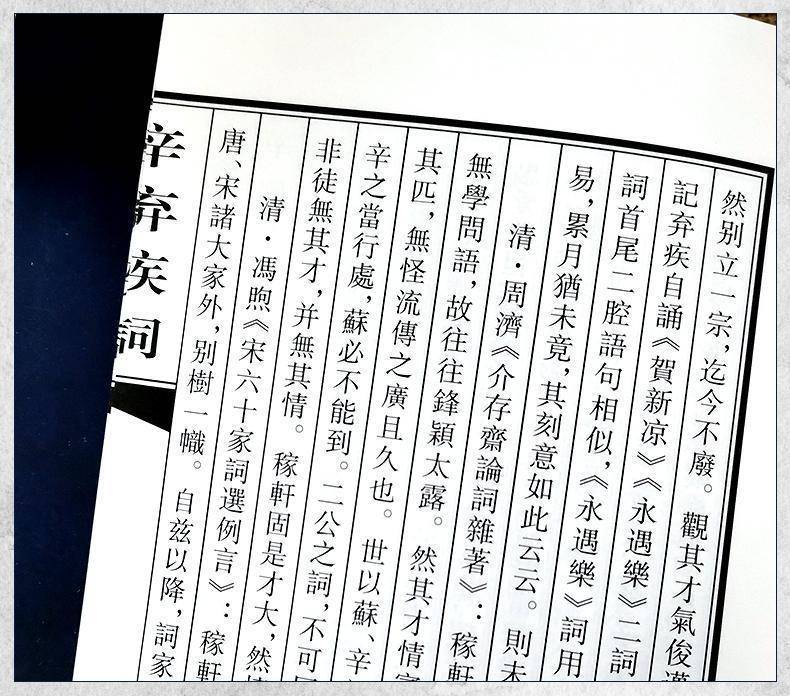 然別立一宗，迄今不廢。　觀其才氣俊邁
記弃疾自誦《賀新凉》《永遇樂》二詞
詞首尾二腔語句相似，《永遇樂》詞用
易，累月猶未竟，其刻意如此云云。　則未
清·周濟《介存齋論詞雜著》：　稼軒
無學問語，故往往鋒穎太露。　然其才情富
其匹，無怪流傳之廣且久也。　世以蘇、辛
辛之當行處，蘇必不能到。　二公之詞，不可同
非徒無其才，并無其情。　稼軒固是才大，然
清·馮煦《宋六十家詞選例言》：　稼軒
唐、宋諸大家外，別樹一幟。　自兹以降，詞家
辛弃疾詞